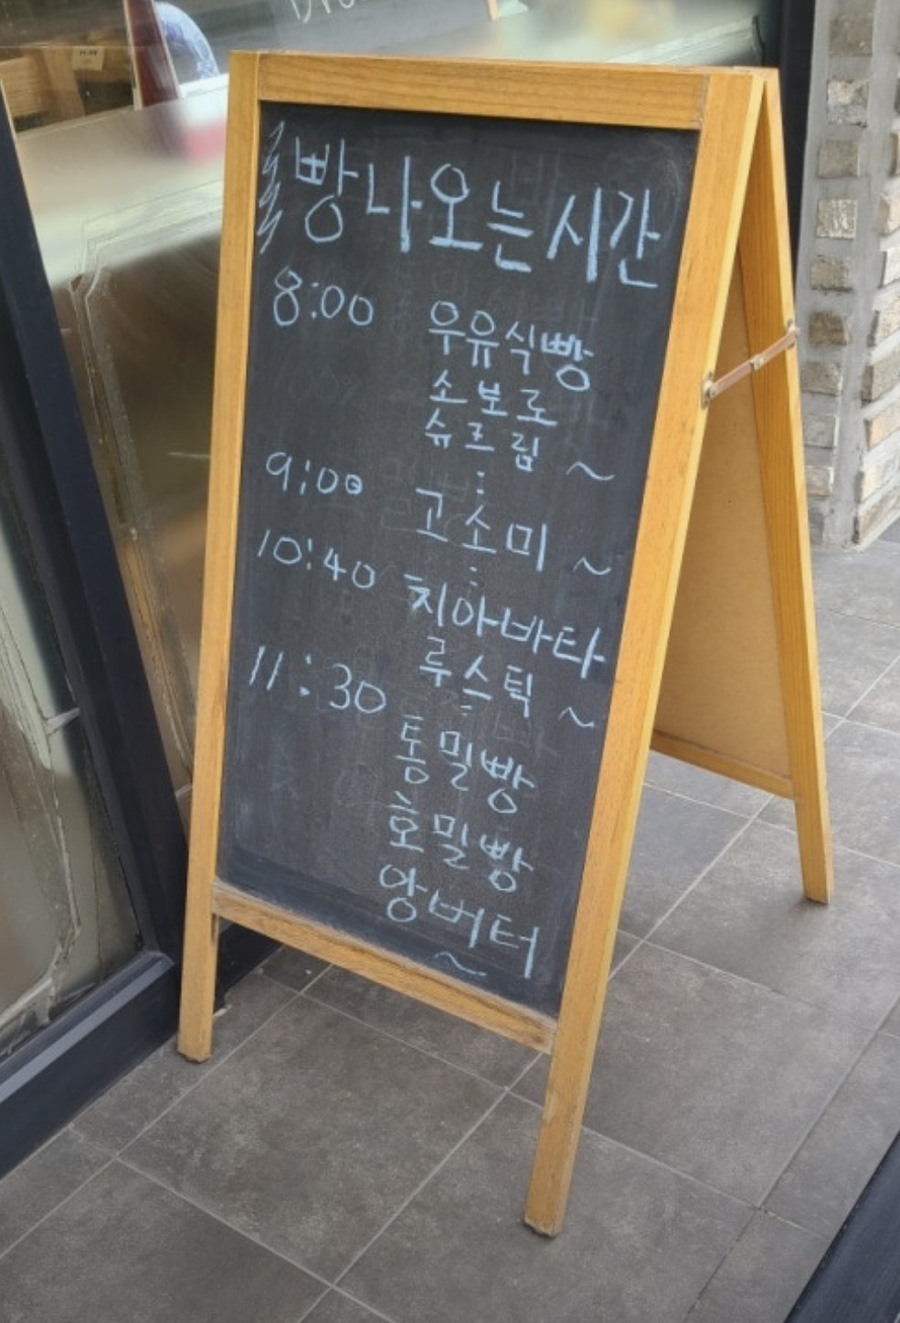 빵나오는시간
8:00 우유식빵
소보로
슈크림 ~
9:00 고소미 ~
10:40 치아바타
루스틱 ~
11:30
통밀빵
호밀빵
앙버터
~